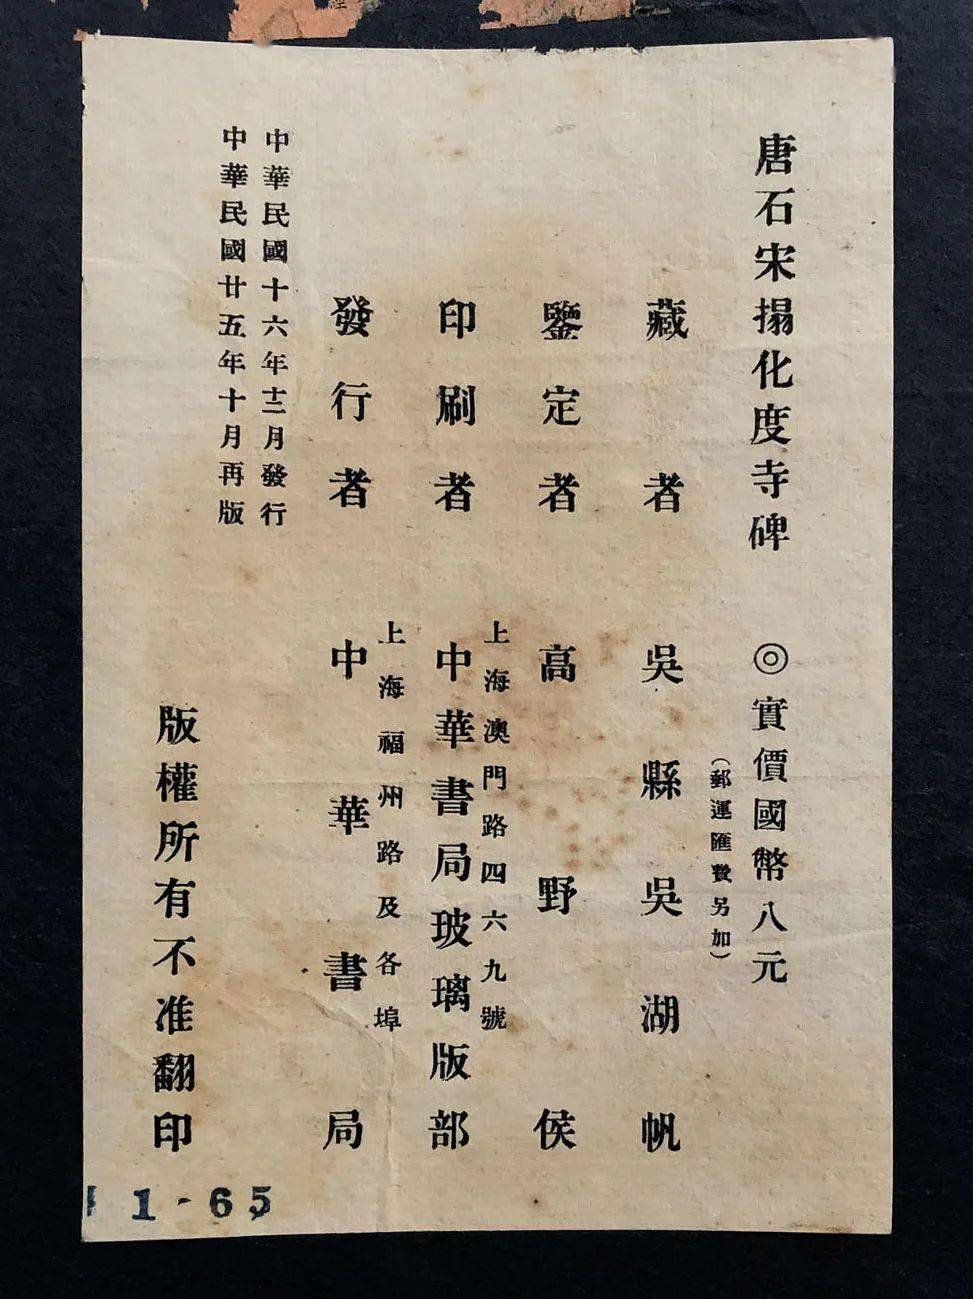 唐石宋搨化度寺碑 ◎實價國幣八元
（郵運匯費另加）
藏者 吳縣吳湖帆
鑒定者 高野侯
上海澳門路四六九號
印刷者 中華書局玻璃版部
上海福州路及各埠
發行者 中華書局
中華民國十六年十二月發行
中華民國廿五年十月再版
版權所有不准翻印
1-65